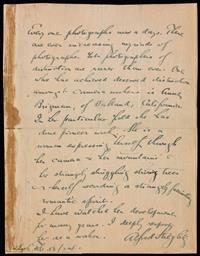 Every one photographs now a days. There
are ever increasing myriads of
photographs. Yet photographers of
distinction are rarer than ever. One
who has achieved deserved distinction
amongst camera workers is Annie
Brigman, of Oakland, California.
In her particular field she has
done pioneer work. She is a
woman expressing herself through
her camera & her mountains &
her strangely struggling trees
herself revealing a strangely
romantic spirit.
I have watched her development
for many years. I deeply respect
her as a worker.
Alfred Stieglitz